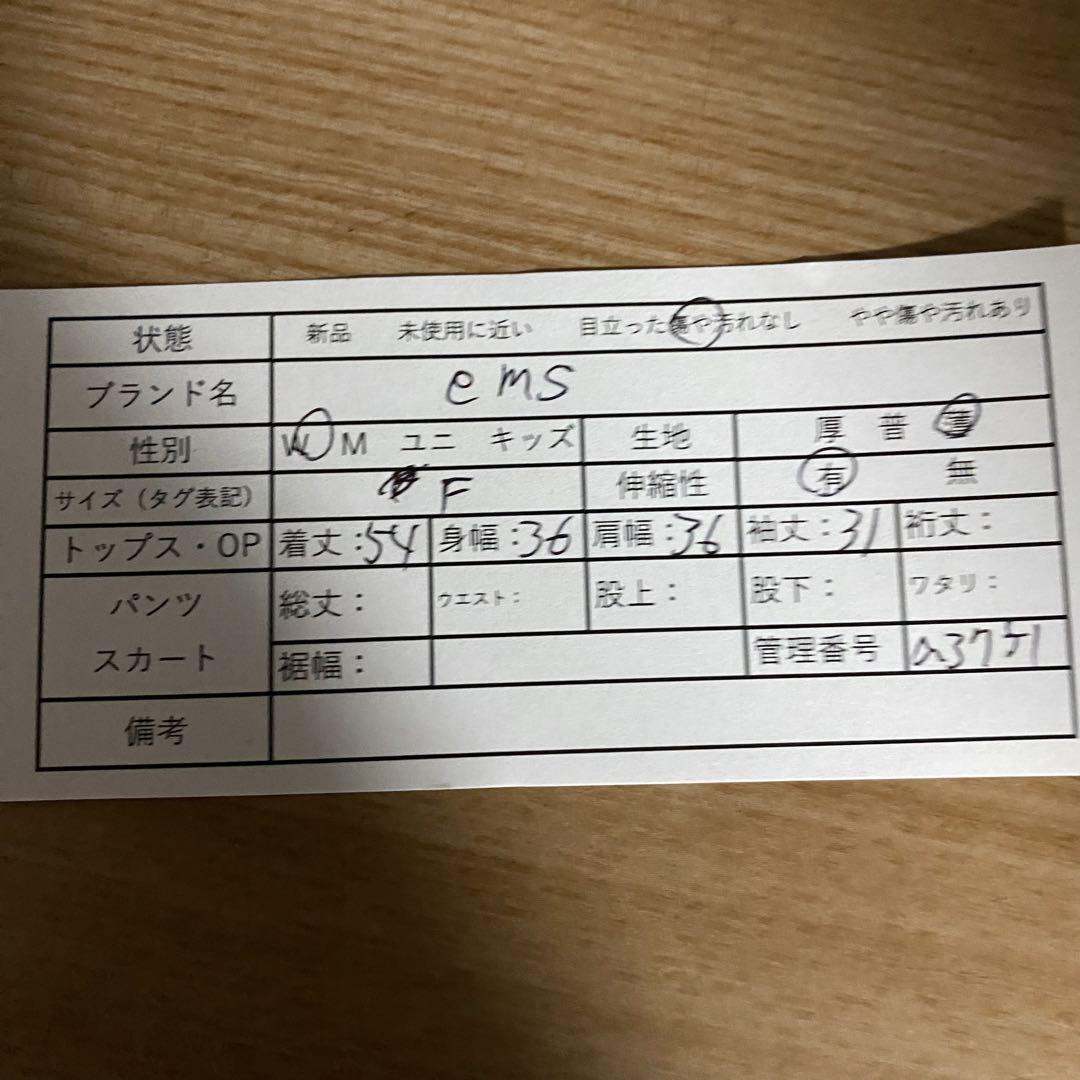 状態 新品 未使用に近い 目立った傷や汚れなし やや傷や汚れあり
ブランド名 ems
性別 W M ユニ キッズ 生地 厚 普 薄
サイズ（タグ表記） F 伸縮性 有 無
トップス・OP 着丈：54 身幅：36 肩幅：36 袖丈：31 裄丈：
パンツ 総丈： ウエスト： 股上： 股下： ワタリ：
スカート 裾幅： 管理番号
備考